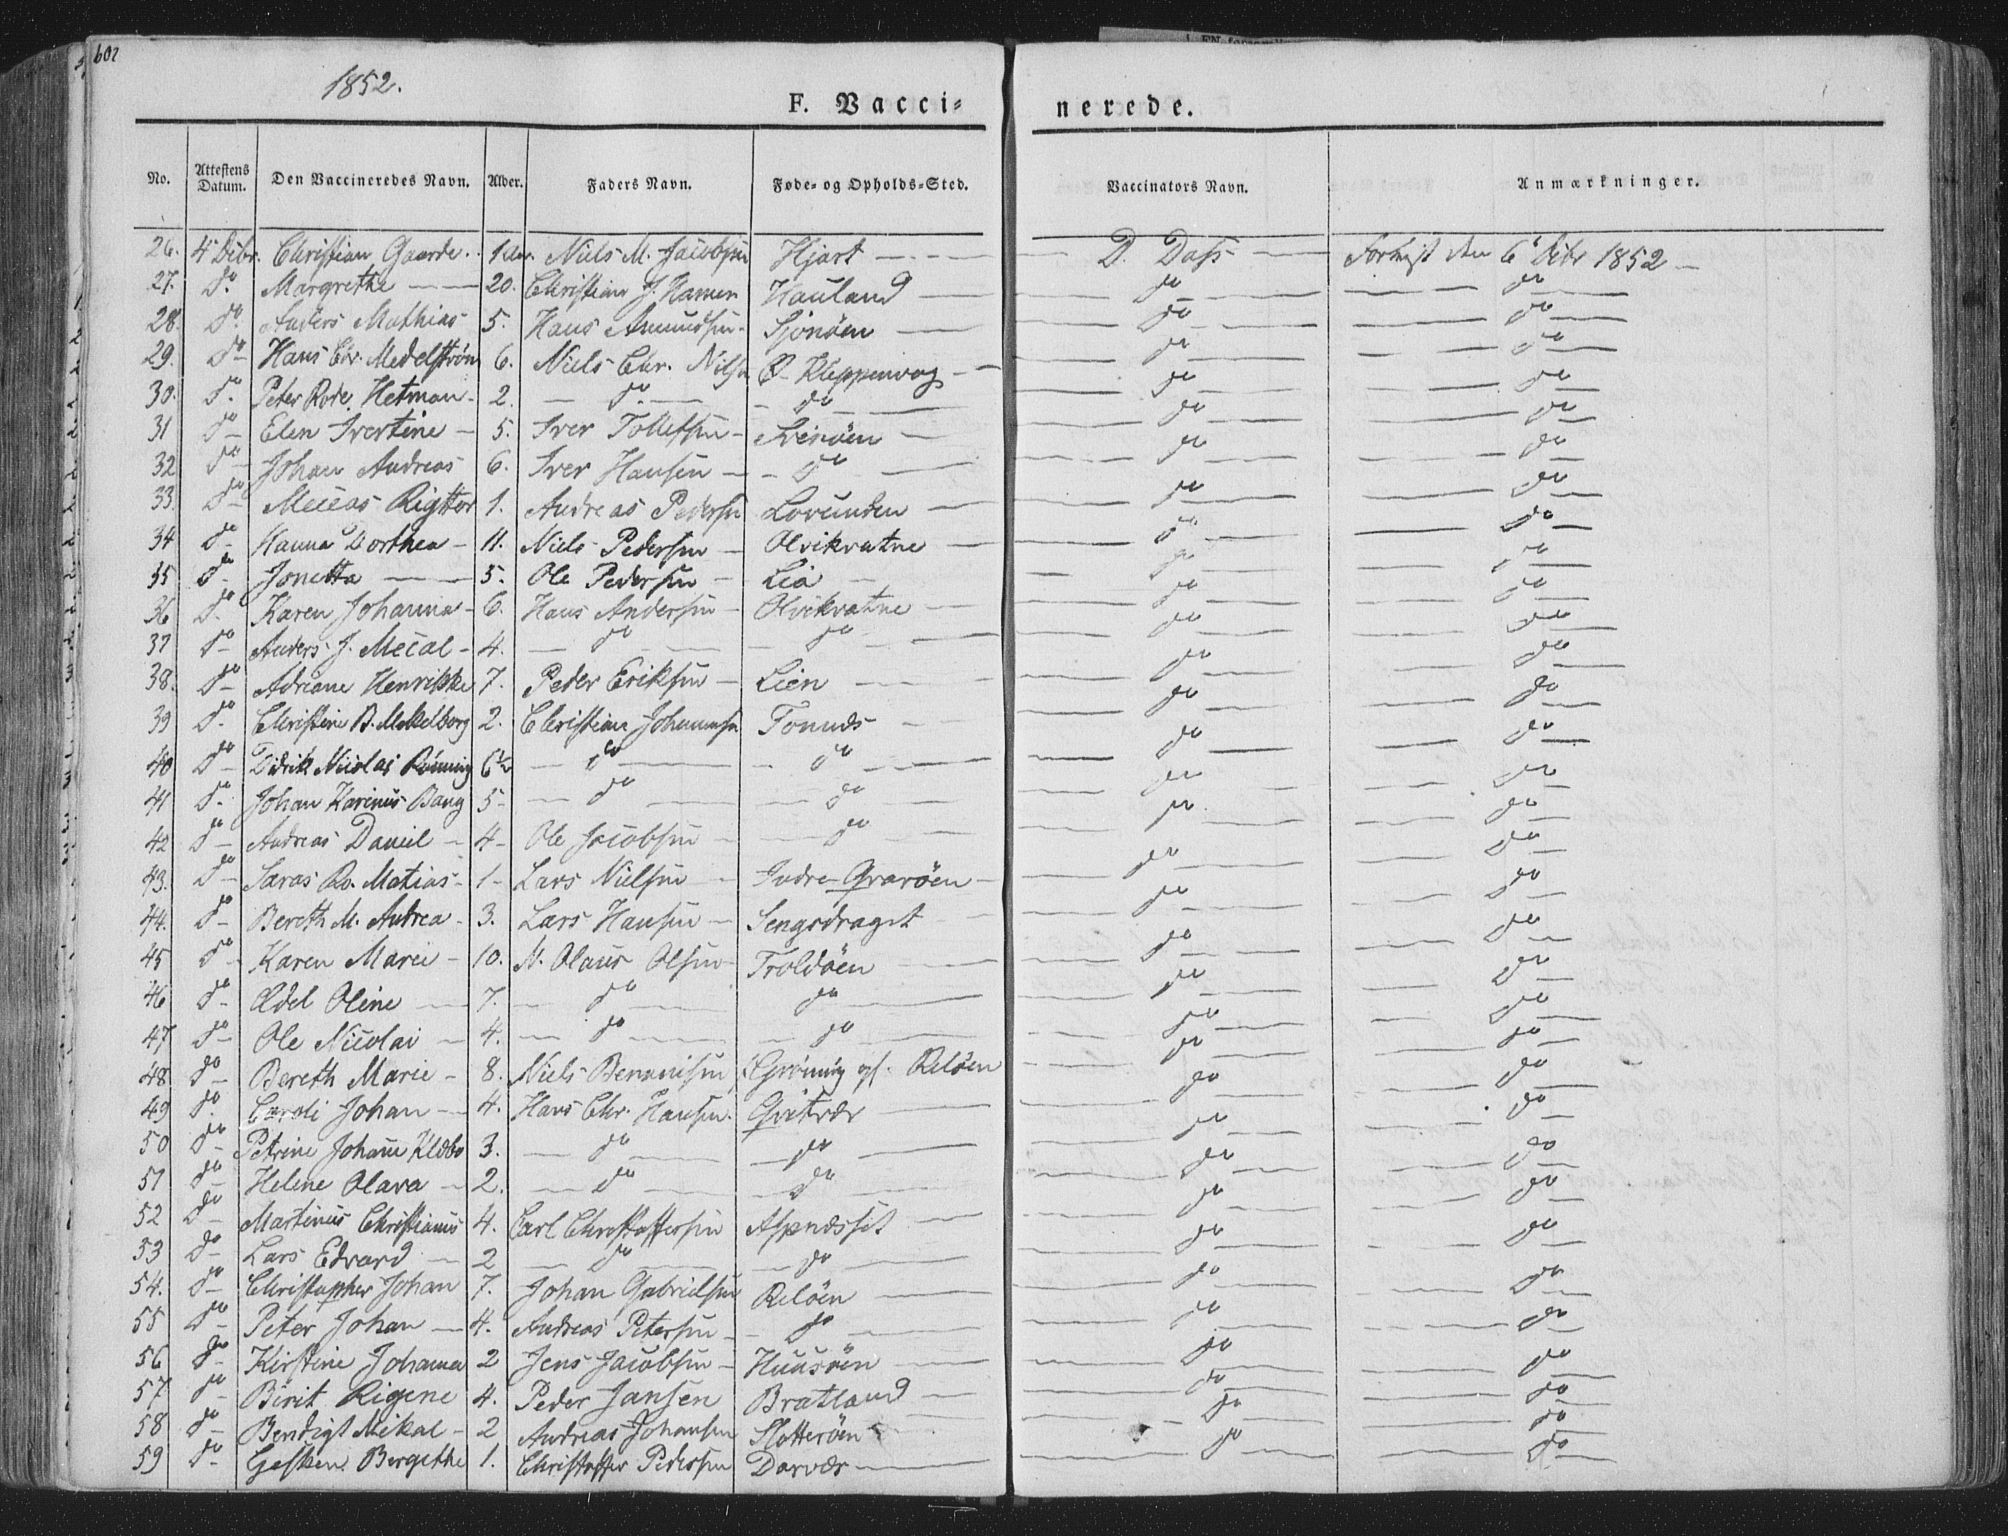 602
1852.
F. Vacci= nerede.
No. Attestens Datum. Den Vaccineredes Navn. Alder. Faders Navn. Føde- og Opholds-Sted. Vaccinators Navn. Anmærkninger.
26. 4 Decbr. Christian Gaarde 1 Niels M. Jacobsen Hjart D. Dass den 6 Decbr 1852
27. do Margrethe 20. Christian J. Hauland do do
28. do Anders Mathias 5. Hans Amundsen Sjonøen do do
29. do Hans Chr. Medelstrøm 6. Niels Chr. Nilsen Ø. Kleppenvag do do
30. do Peter Rode Hetman 2. do do do do
31 do Elen Ivertine 5. Iver Tollefsen do do
32 do Johan Andreas 6. Iver Hansen do do do
33. do Rigttor 1. Andreas Pedersen Lovunden do do
34 do Hanna Dorthea 11. Niels Pedersen Olvikvatne do do
35 do Jonetta 5. Ole Pedersen Lia do do
36 do Karen Johanna 6. Hans Andersen Olvikvatne do do
37 do Anders J. Mecal 4. do do do do
38. do Adriane Henrikke 7. Peder Eriksen Lien do do
39 do Christine B. Mekelborg 2. Christian Johannesen Tonnæs do do
40 do Didrik Nicolai Rønning 6½ do do do do
41 do Johan Karinus Bang 5 do do do do
42 do Andreas Daniel 4 Ole Jacobsen do do do
43. do Saras Matias 1 Lars Nielsen Indre Qvarøen do do
44. do Bereth M. Andrea 3. Lars Hansen Sengsdraget do do
45 do Karen Marie 10. N. Olaus Olsen Troldøen do do
46 do Edel Oline 7. do do do do
47 do Ole Nicolai 4. do do do do
48 do Bereth Marie 8. Niels Bennonisen Grønning Reløen do do
49 do Johan 4. Hans Chr. Hansen Qvitvær do do
50 do Petrine Johanne Klæbo 3. do do do do
51 do Helene Olava 2. do do do do
52 do Martinus Christianus 4. Carl Christoffersen do do
53 do Lars Edvard 2 do do do do
54. do Christopher Johan 7. Johan Gabrielsen Reløen do do
55 do Peter Johan 4. Andreas Petersen do do do
56 do Kirstine Johanna 2 Jens Jacobsen Huusøen do do
57 do Birit Rigene 4. Peder Jansen Bratland do do
58 do Bendigt Mikal 2 Andreas Johansen Slotterøen do do
59 do Gesken Bergithe 1. Christoffer Pedersen Dorvær do do